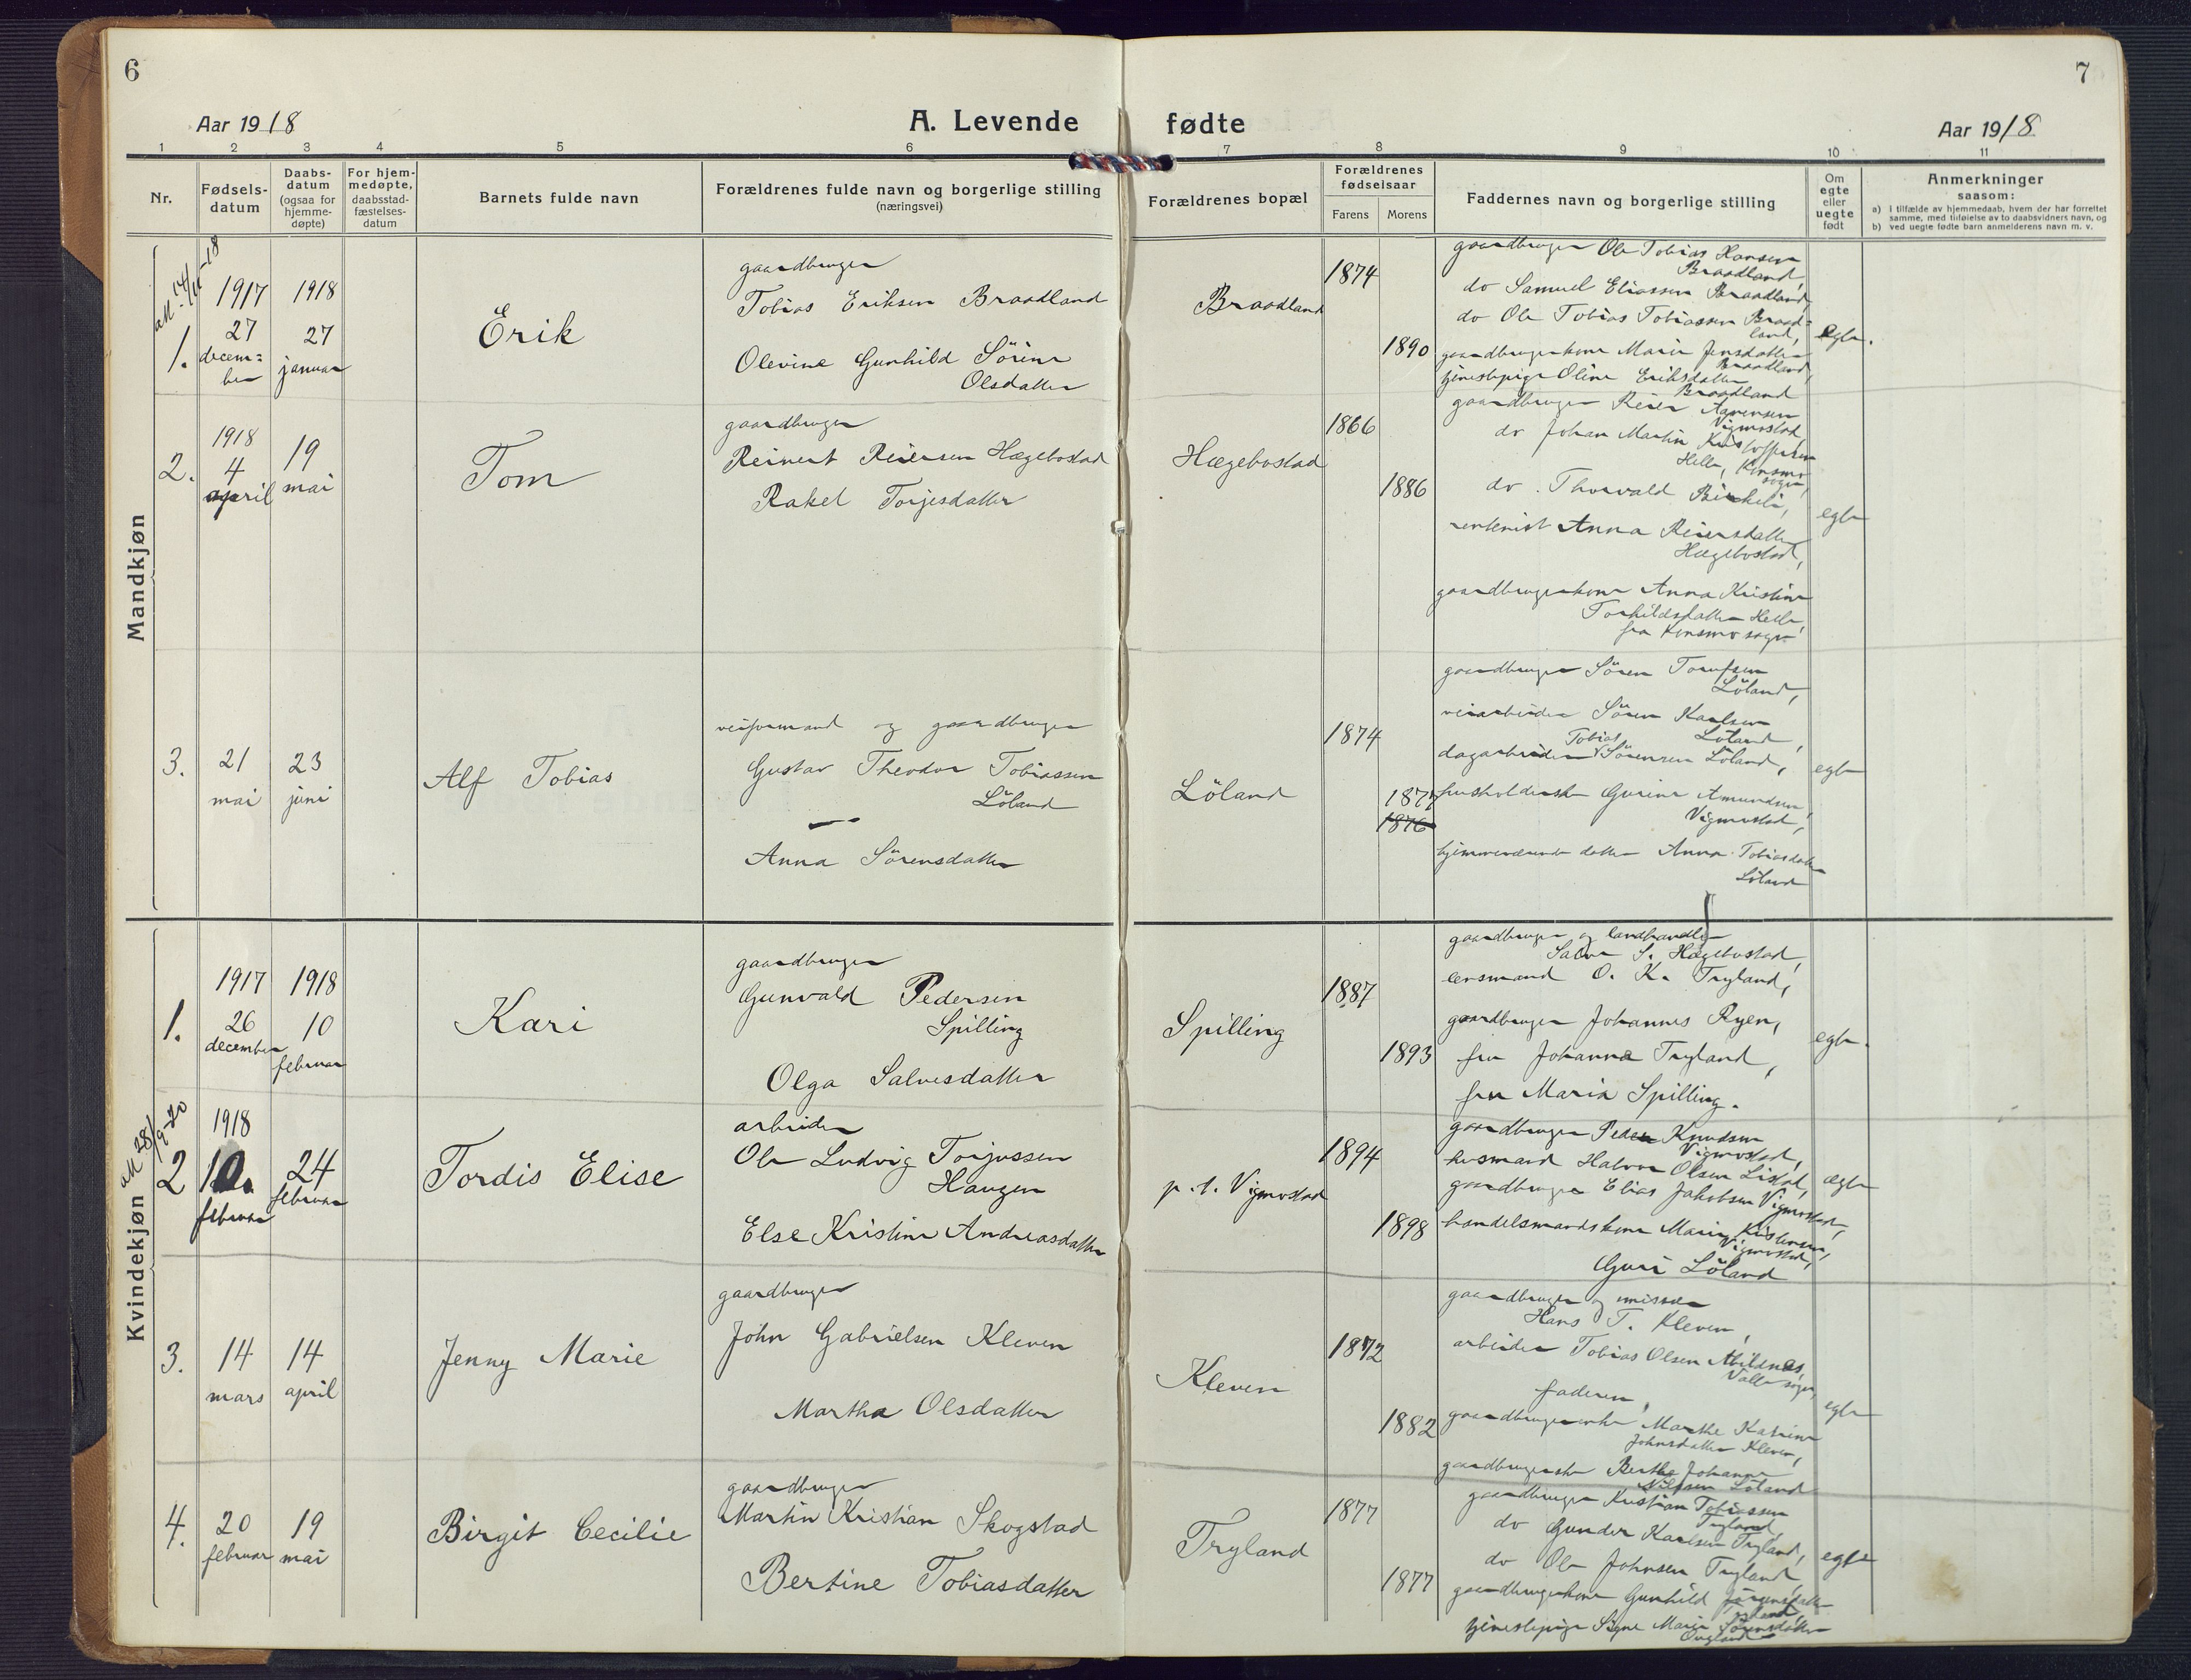 6
7
Aar 1918
A. Levende fødte
Aar 1918
1 2 3 4 5 6 7 8 9 10 11
Nr.
Fødsels-
datum
Daabs-
datum
(ogsaa for
hjemme-
døpte)
For hjem-
medøpte,
daabsstad-
fæstelses-
datum
Barnets fulde navn
Forældrenes fulde navn og borgerlige stilling
(næringsvei)
Forældrenes bopæl
Forældrenes
fødselsaar
Farens Morens
Faddernes navn og borgerlige stilling
Om
egte
eller
uegte
født
Anmerkninger
saasom:
a) i tilfælde av hjemmedaab, hvem der har forrettet
samme, med tilføielse av to daabsvidners navn, og
b) ved uegte fødte barn anmelderens navn m. v.
Mandkjøn
1.
1917
27
decem=
ber
1918
27
januar
Erik
gaardbruger
Tobias Eriksen Braadland
Olevine Gunhild Sörine
Olsdatter
Braadland
1874
1890
gaardbruger Ole Tobias Hansen
Braadland,
do Samuel Eliassen Braadland,
do Ole Tobias Tobiassen Braad=
land,
gaardbrugerkone Marie Jensdatter
Braadland,
tjenestepige Oline Eriksdatter
Braadland
egte.
2.
1918
4
april
19
mai
Tom
gaardbruger
Reinert Reiersen Hægebostad
Rakel Torjesdatter
Hægebostad
1866
1886
gaardbruger Reier Aanensen
Vigmostad
do Johan Martin Kristoffersen
Helle, Konsmo
sogn,
do. Thorvald Birkeli,
rentenist Anna Reiersdatter
Hægebostad,
gaardbrugerkone Anna Kristine
Torkildsdatter Helle,
fra Konsmo sogn
egte
3.
21
mai
23
juni
Alf Tobias
veiformand og gaardbruger
Gustav Theodor Tobiassen
Löland
Anna Sörensdatter
Löland
1874
1877
1876
gaardbruger Sören
Löland,
veiarbeider Sören Karlsen
Löland,
dagarbeider Tobias Sörensen Löland,
husholderske Gurine Amundsen
Vigmostad,
hjemmeværende datter Anna Tobiasdatter
Löland
egte
Kvindekjøn
1.
1917
26
december
1918
10
februar
Kari
gaardbruger
Gunvald Pedersen
Spilling
Olga Salvesdatter
Spilling
1887
1893
gaardbruger og landhandler
Salve S. Hægebostad,
lensmand O. K. Tryland,
gaardbruger Johannes Ryen,
fru Johanna Tryland,
fru Maria Spilling.
egte.
2
1918
10.
februar
24
februar
Tordis Elise
arbeider
Ole Ludvig Torjussen
Haugen
Else Kristine Andreasdatter
p. t. Vigmostad
1894
1898
gaardbruger Peder Knudsen
Vigmostad,
husmand Halvor Olsen Listöl,
gaardbruger Elias Jakobsen Vigmostad,
handelsmandskone Marie Kristensen,
Vigmostad,
Guri Löland
ægte
3.
14
mars
14
april
Jenny Marie
gaardbruger
John Gabrielsen Kleven
Martha Olsdatter
Kleven
1872
1882
gaardbruger og
Hans T. Kleven,
arbeider Tobias Olsen Abildnes,
Valle sogn,
faderen,
gaardbrugerenke Marthe Katrine
Johnsdatter Kleven,
gaardbrugerske Berthe Johanne
Nilsen Löland
egte
4.
20
februar
19
mai
Birgit Cecilie
gaardbruger
Martin Kristian Skogstad
Bertine Tobiasdatter
Tryland
1877
1877
gaardbruger Kristian Tobiassen
Tryland,
do Gunder Karlsen Tryland,
do Ole Johnsen Tryland
gaardbrugerkone Gunhild
tjenestepige Signe Marie Sörensdatter
egte